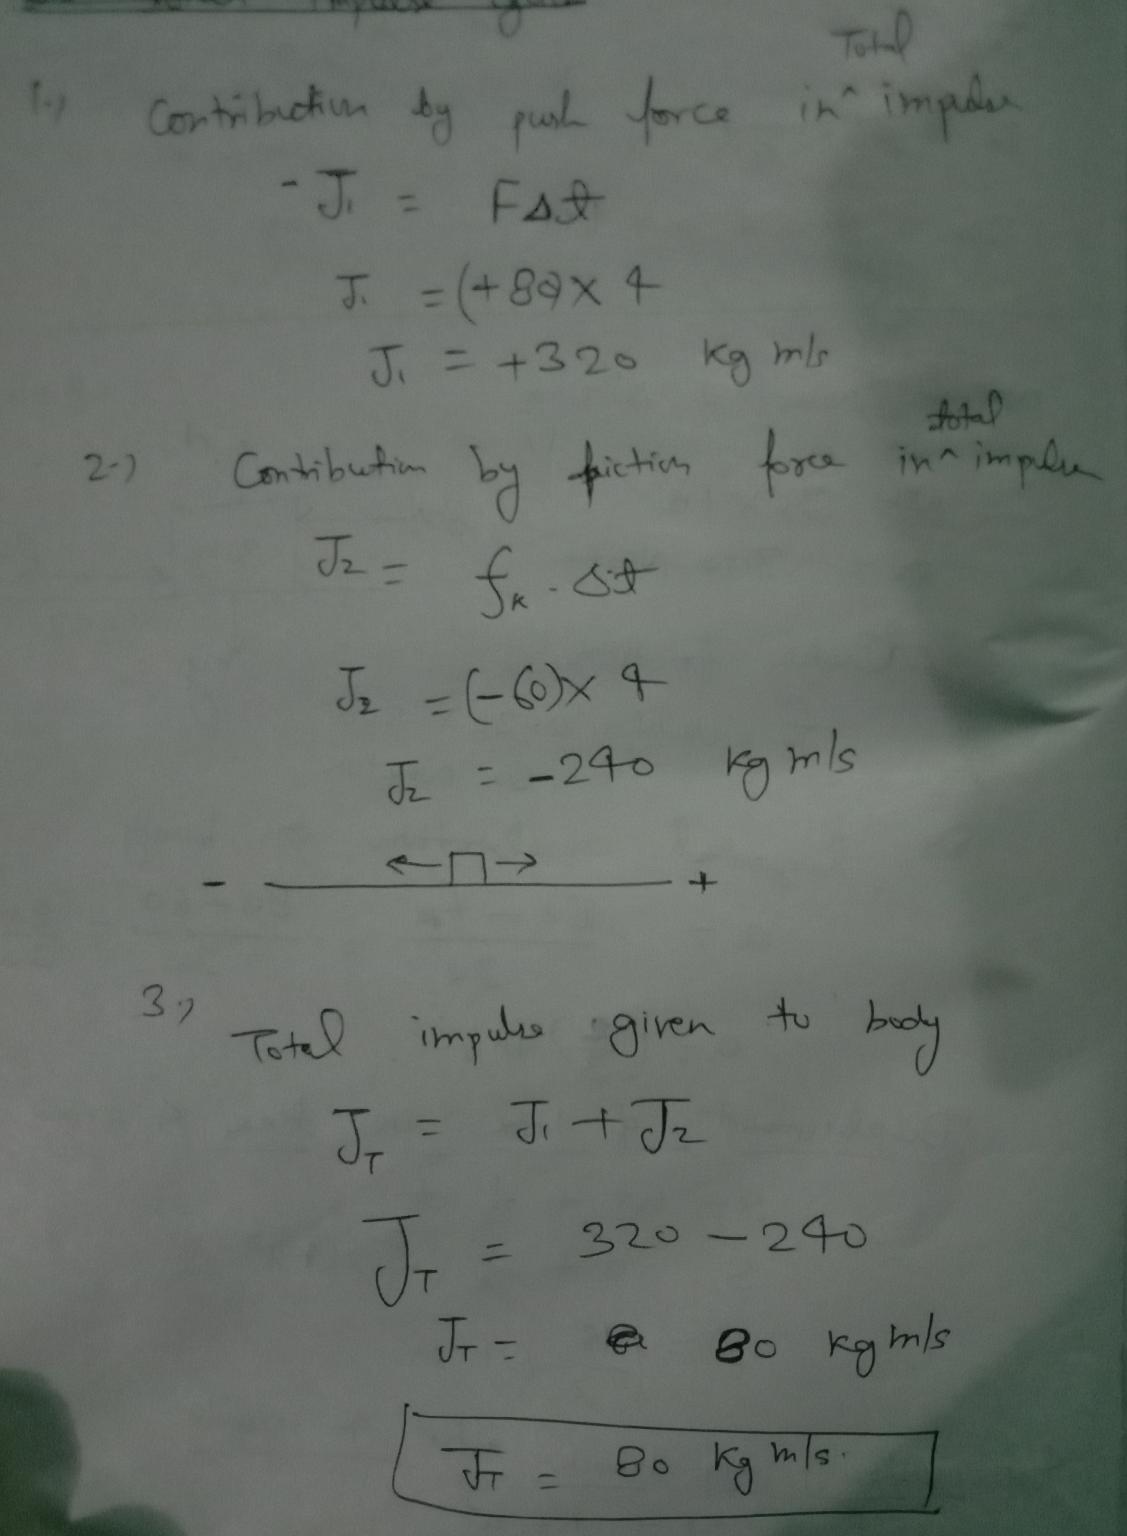 impulse
Total
1.) Contribution by push force in ^ impulse
- J₁ = FΔt
J₁ = (+80)× 4
J₁ = +320 kg m/s
total
2.) Contribution by friction force in ^ impulse
J₂ = fₖ . Δt
J₂ = (-60)× 4
J₂ = -240 kg m/s
- ← → +
3.) Total impulse given to body
J_T = J₁ + J₂
J_T = 320 - 240
J_T = 80 kg m/s
J_T = 80 kg m/s.